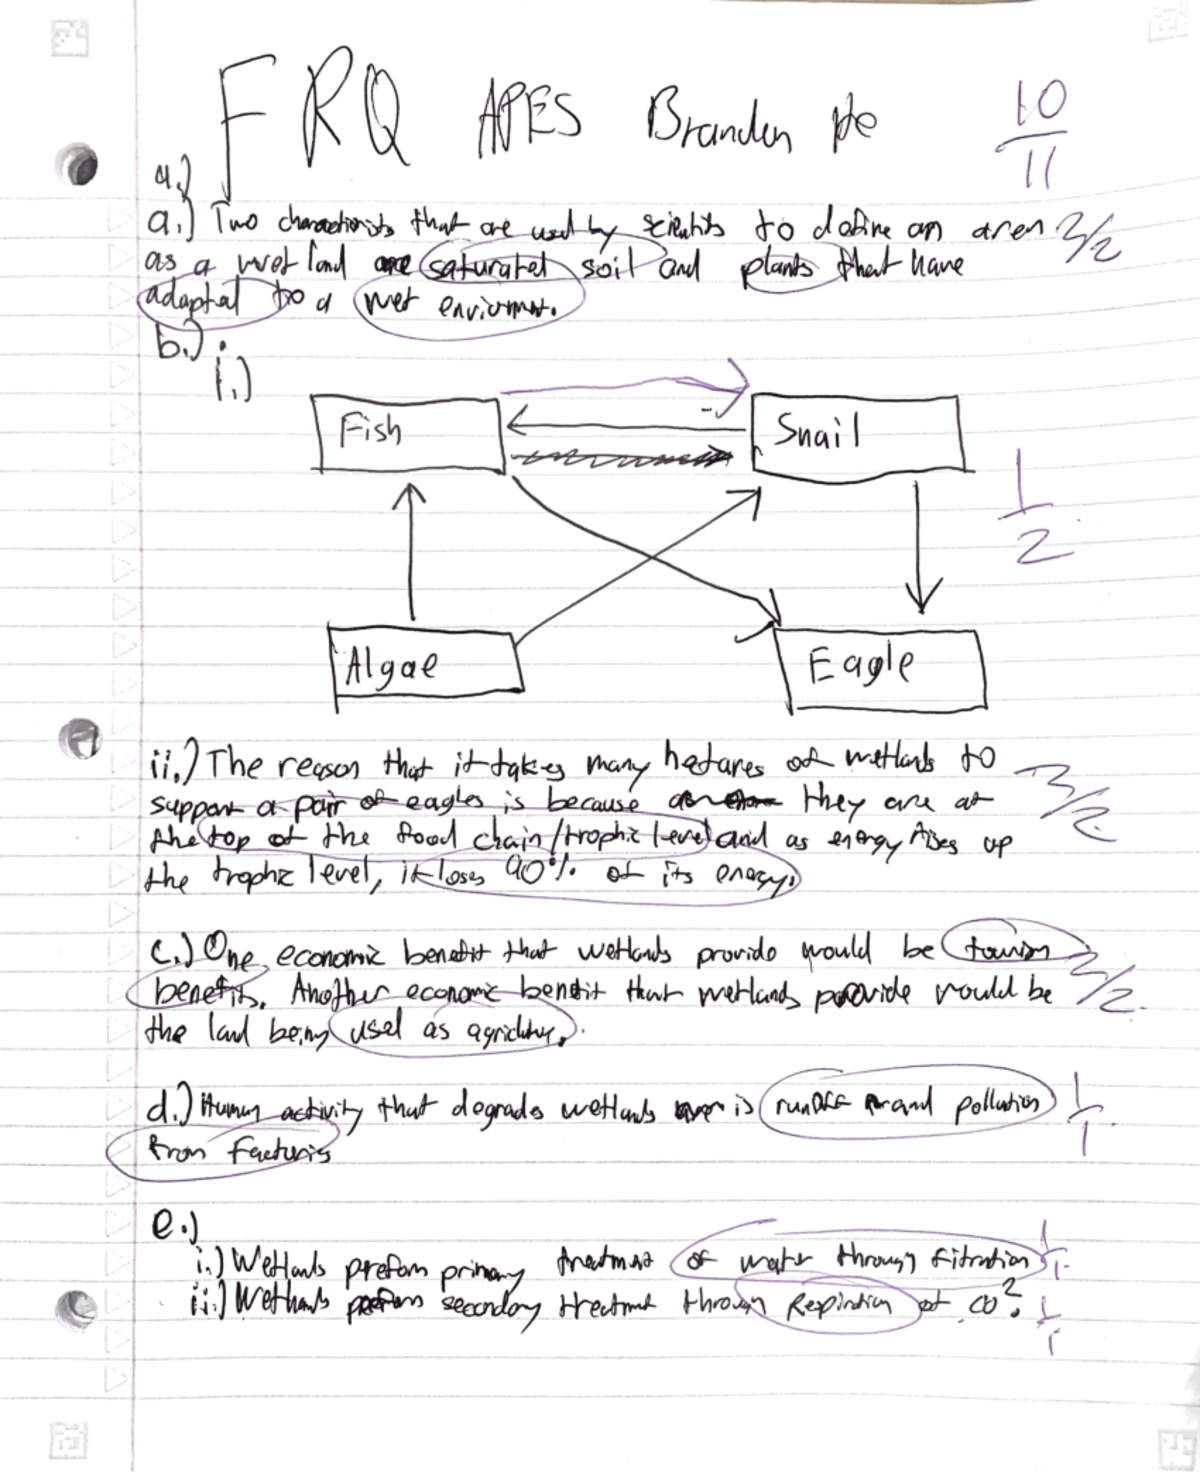 FRQ APES Brandon He 10/11
4.)
a.) Two characterists that are used by scientits to define an area 2/2
as a wetland are saturated soil and plants that have
adapted to a wet enviorment.
b.)
i.)
Fish Snail
1/2
Algae Eagle
ii.) The reason that it takes many hectares of wetlands to
support a pair of eagles is because they are at 2/2
the top of the food chain/trophic level and as energy rises up
the trophic level, it loses 90% of its energy.
c.) One economic benefit that wetlands provide would be tourism 2/2
benefits. Another economic benefit that wetlands provide would be
the land being used as agriculture.
d.) Human activity that degrades wetlands is runoff and pollution 1/1
from factories
e.)
i.) Wetlands preform primary treatment of water through filtration 1/1
ii.) Wetlands preform secondary treatment through Respiration of CO². 1/1